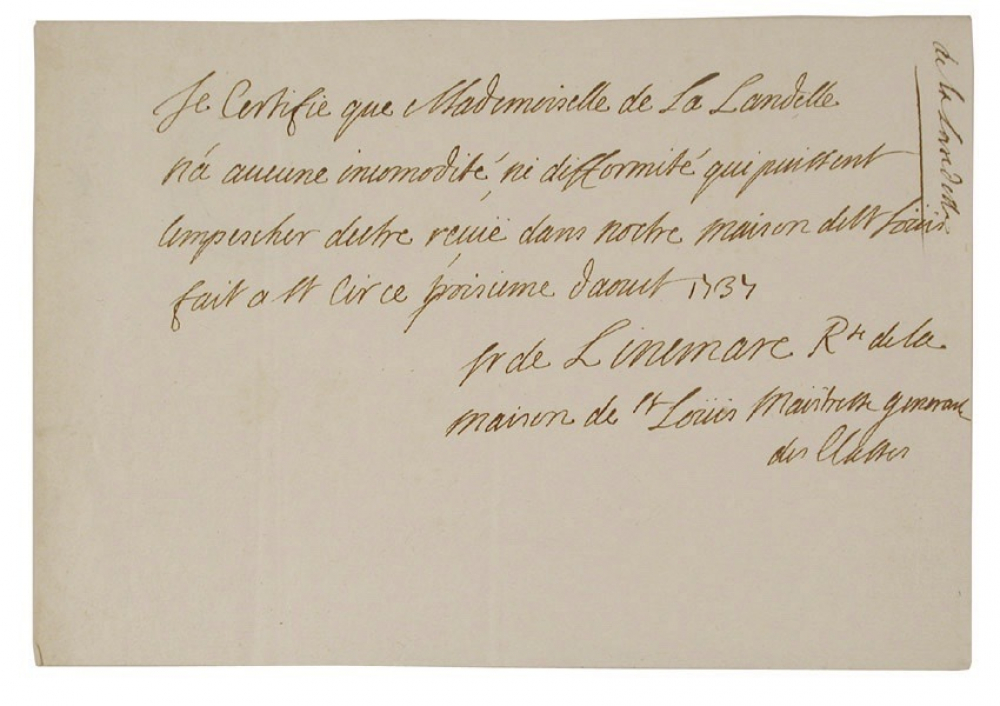 Je Certifie que Mademoiselle de La Landelle
n'a aucune incomodité ni difformité qui puissent
lempescher destre reçuë dans nostre maison de st Loüis
fait a st Cir ce troisieme daoust 1737
sr de Linemare Rse de la
maison de st Loüis Maistresse generale
des Classes
de la Landelle